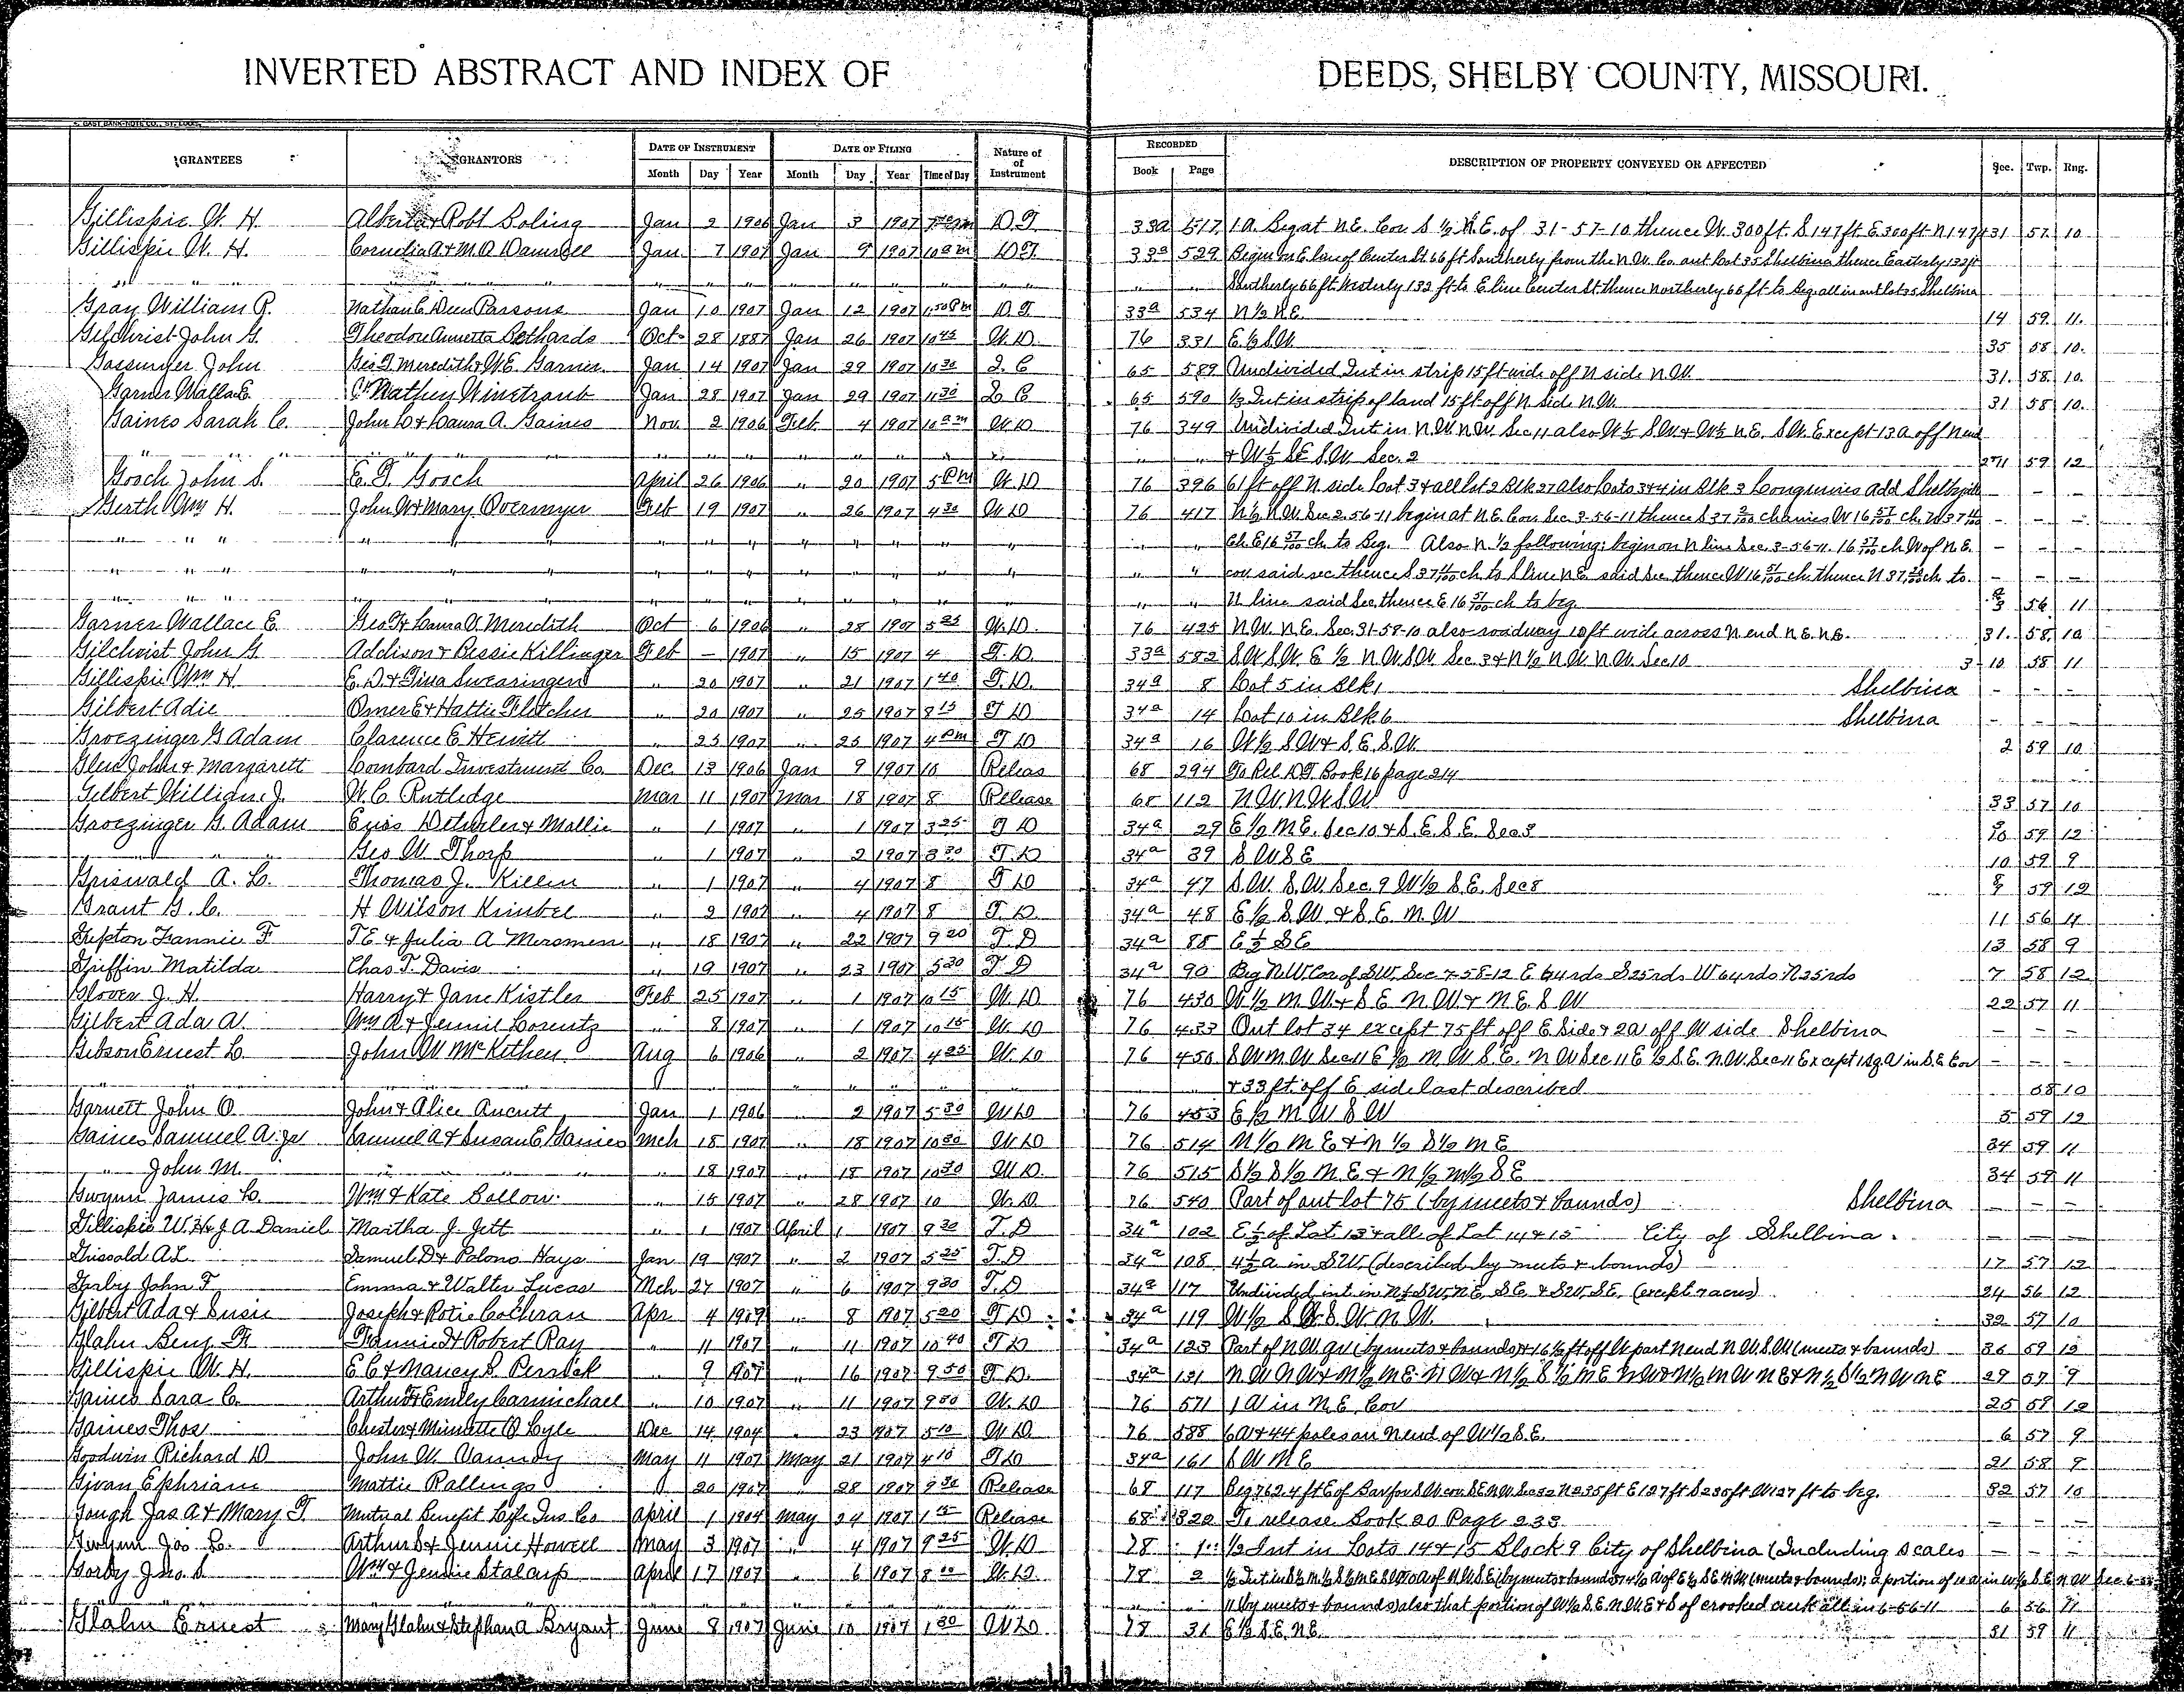 INVERTED ABSTRACT AND INDEX OF DEEDS, SHELBY COUNTY, MISSOURI.
GRANTEES GRANTORS DATE OF INSTRUMENT DATE OF FILING Nature of Instrument RECORDED DESCRIPTION OF PROPERTY CONVEYED OR AFFECTED Sec. Twp. Rng.
Month Day Year Month Day Year Time of Day Book Page
Gillispie W. H. Alberta & Robt Boling Jan 2 1906 Jan 3 1907 D T 33a 517 1 a. Beg at N.E. Cor. S ½ N.E. of 31-57-10 thence W. 300 ft. S 147 ft. E 300 ft N 147 ft 31 57 10
Gillispie W. H. Cornelia A & M. D. Damrell Jan 7 1907 Jan 9 1907 10 am DT 33a 529 Begin on E line of Center St 66 ft Southerly from the N.W. Co out Lot 35 Shelbina thence Easterly 132 ft
" " " " " " " " Southerly 66 ft Westerly 132 ft to E line Center St thence Northerly 66 ft to Beg all in out lot 35 Shelbina
Gray William R. Nathan & Deen Parsons Jan 10 1907 Jan 12 1907 1 50 Pm D T 33a 534 N ½ N.E. 14 59 11.
Gilchrist John G. Theodore Annetta Bethards Oct 28 1887 Jan 26 1907 10 45 W. D. 76 331 E ½ S.W. 35 58 10.
Gossinger John Geo T. Meredith & W.E. Garner Jan 14 1907 Jan 29 1907 10 30 2. C 65 589 Undivided Int in strip 15 ft wide off N side N.W. 31. 58. 10.
Garner Walla E. C. Mathew Winetraub Jan 28 1907 Jan 29 1907 11 30 2 C 65 590 ½ Int in strip of land 15 ft off N side N.W. 31 58 10.
Gaines Sarah C. John D & Laura A. Gaines Nov. 2 1906 Feb 4 1907 10 am W D 76 349 Undivided Int in N.W. N.W. Sec 11 also W ½ S.W. & W ½ N.E. S.W. Except 13 a off N end
" " " " " " & W ½ SE S.W. Sec. 2 2-11 59 12
Gooch John S. E. T. Gooch April 26 1906 " 20 1907 5 Pm W D 76 396 61 ft off N side Lot 3 & all lot 2 Blk 27 also Lots 3&4 in Blk 3 Add Shelbyville - - -
Gerth Wm H. John W & Mary Overmyer Feb 19 1907 " 26 1907 4 30 W D 76 417 N ½ N.W. Sec 2.56-11 begin at N.E. Cor. Sec. 3-56-11 thence S 37 chaines W 16 57/100 ch. N 37 - - -
" " " " " " " Ch. E 16 57/100 ch to Beg. Also N ½ following: begin on N line Sec. 3-56-11. 16 57/100 ch W of N.E. - - -
" " " " " " " cor said sec thence S 37 ch to S line N.E. said Sec thence W 16 57/100 ch thence N 37 ch to - - -
" " " " " " " N line said Sec. thence E 16 57/100 ch to beg. 2/3 56 11
Garner Wallace E. Geo T & Laura A. Meredith Oct 6 1906 " 28 1907 5 25 W. D. 76 425 N.W. N.E. Sec. 31-58-10 also roadway 10 ft wide across N end N.E. N.E. 31. 58. 10
Gilchrist John G Addison & Bessie Killinger Feb - 1907 " 15 1907 4 T. D. 33a 582 S.W. S.W. E ½ N.W. S.W. Sec 3 & N ½ N.W. N.W. Sec 10 3-10 58 11
Gillispie Wm H E. D. & Tina Swearingen " 20 1907 " 21 1907 1 40 T. D. 34a 8 Lot 5 in Blk 1 Shelbina - - -
Gilbert Adie Omer E & Hattie Fletcher " 20 1907 " 25 1907 8 15 T D 34a 14 Lot 10 in Blk 6 Shelbina - - -
Groezinger G Adam Clarence E Hewitt " 23 1907 " 25 1907 4 Pm T D 34a 16 W ½ S.W & S.E. S.W. 2 59 10
John & Margarett Lombard Investment Co. Dec 13 1906 Jan 9 1907 10 Releas 68 294 To Rel D.T. Book 16 page 214
Gilbert William J. W. C. Rutledge Mar 11 1907 Mar 18 1907 8 Release 68 112 N.W. N.W S.W 33 57 10
Groezinger G. Adam Detwiler & Mollie " 1 1907 " 1 1907 3 25 T D 34a 29 E ½ N.E. Sec 10 & S.E. S.E. Sec 3 3/10 59 12
" " Geo W. Thorp " 1 1907 " 2 1907 8 30 T. D 34a 39 S W S E 10 59 9
Griswald A. L. Thomas J. Killen " 1 1907 " 4 1907 8 T D 34a 47 S.W. S.W. Sec. 9 W ½ S.E. Sec 8 8/9 59 12
Grant G. C. H Wilson Kimbel " 2 1907 " 4 1907 8 T. D. 34a 48 E ½ S.W & S.E. N W 11 56 11
Gupton Fannie F T E & Julia A Mersmen " 18 1907 " 22 1907 9 20 T. D 34a 88 E ½ S E 13 58 9
Griffin Matilda Chas T. Davis " 19 1907 " 23 1907 5 30 T D 34a 90 Beg N.W. Cor of S.W. Sec 7-58-12 E 64 rds S 25 rds W 64 rds N 25 rds 7 58 12
Glover J. H. Harry & Jane Kistler Feb 25 1907 " 1 1907 10 15 W. D. 76 430 W ½ N W & S E N W & N.E. S W 22 57 11
Gilbert Ada A. Wm A & Jennie Lorentz " 8 1907 " 1 1907 10 15 W D 76 433 Out lot 34 except 75 ft off E Side & 2 a off W side Shelbina - - -
Gibson Ernest L. John W McKethen Aug 6 1906 " 2 1907 4 25 W. D 76 450 S W N W Sec 11 E ½ N.W. S.E. N.W Sec 11 E ½ S.E. N.W. Sec 11 Except 1 sq. a in S.E. Cor - - -
" " " & 33 ft. off E side last described 58 10
Garnett John O. John & Alice Ancutt Jan 1 1906 " 2 1907 5 30 W D 76 453 E ½ N W S W 5 59 12
Gaines Samuel A. Jr Samuel A & Susan E Gaines Mch 18 1907 " 18 1907 10 30 W. D 76 514 N ½ N E & N ½ S ½ N E 34 59 11
" John M. " " " 18 1907 " 18 1907 10 30 W D. 76 515 S ½ S ½ N.E & N ½ N ½ S E 34 59 11
Gwynn James L. Wm & Kate Bollow " 15 1907 " 28 1907 10 W. D. 76 540 Part of out lot 75 (by meets & bounds) Shelbina - - -
Gillispie W. H. & J A Daniel Martha J. Jett " 1 1907 April 1 1907 9 30 T. D 34a 102 E ½ of Lot 13 & all of Lot 14 & 15 City of Shelbina. - - -
Grisold A L Samuel D & Polono Hays Jan 19 1907 " 2 1907 5 25 T. D 34a 108 4½ a in S.W. (described by meets & bounds) 17 57 12
John F Emma & Walter Lucas Mch 27 1907 " 6 1907 9 30 T. D 34a 117 Undivided int. in N ½ SW, N.E. S.E. & SW. S.E. (except 7 acres) 24 56 12
Gilbert Ada & Susie Joseph & Potie Cochran Apr 4 1907 " 8 1907 5 20 T D 34a 119 W ½ S.W. N.W. 32 57 10
Glahn Benj H Fannie & Robert Ray " 11 1907 " 11 1907 10 40 T D 34a 123 Part of N.W. qr (by meets & bounds) & 16½ ft off W part N end N.W. S.W (meets & bounds) 36 59 12
Gillispie W. H. E C & Nancy S. Persick " 9 1907 " 16 1907 9 50 T. D. 34a 131 N W N W & N ½ N E N W & N ½ S ½ N E N W & N ½ N W N E & N ½ S ½ N W N E 29 57 9
Gaines Sara C. Arthur & Emily Carmichael " 10 1907 " 11 1907 9 30 W. D 76 571 1 A in N. E. Cor 25 59 12
Gaines Thos Chester & Minnette O Lyle Dec 14 1904 " 23 1907 5 10 W D 76 588 6 A & 44 poles on N end of W ½ S.E. 6 57 9
Goodwin Richard D John W. Vannoy May 11 1907 May 21 1907 4 10 T D 34a 161 S W N E 21 58 9
Givan Ephriam Mattie Rallings " 20 1907 " 28 1907 9 30 Release 68 117 Beg 762.4 ft E of Bar for S.W. cor S.E. N.W. Sec 32 N 235 ft E 127 ft S 235 ft W 127 ft to beg. 32 57 10
Gough Jas A & Mary T. Mutual Benefit Life Ins Co April 1 1904 May 24 1907 1 15 Release 68 322 To release Book 20 Page 233 - - -
Gwynn Jas L. Arthur S & Jennie Howell May 3 1907 " 4 1907 9 25 W. D 78 1 ½ Int in Lots 14 & 15 Block 9 City of Shelbina (Including scales - - -
Gorby Jno. S Wm & Jennie Stalcup April 17 1907 " 6 1907 8 00 W. D 78 2
" " " 11 (by meets & bounds) also that portion of W ½ S.E. N.W. E & S of crooked creek all in 6-56-11 6 56 11
Glahn Ernest Mary Glahn & Stephan A Bryant June 8 1907 June 10 1907 1 30 W D 78 31 E ½ S.E. N.E. 31 59 11